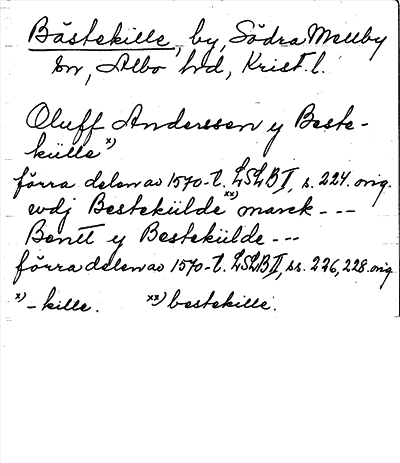 Bästekille, by, Södra Mellby
sn, Albo hd, Krist. l.
Oluff Anderssen y Beste-
külle x)
förra delen av 1570-t. LSLB I, s. 224. orig.
wdj Bestekülde xx) marck - - -
Bentt y Bestekülde - - -
förra delen av 1570-t. LSLB II, ss. 226, 228. orig
x) -kille. xx) bestekille.